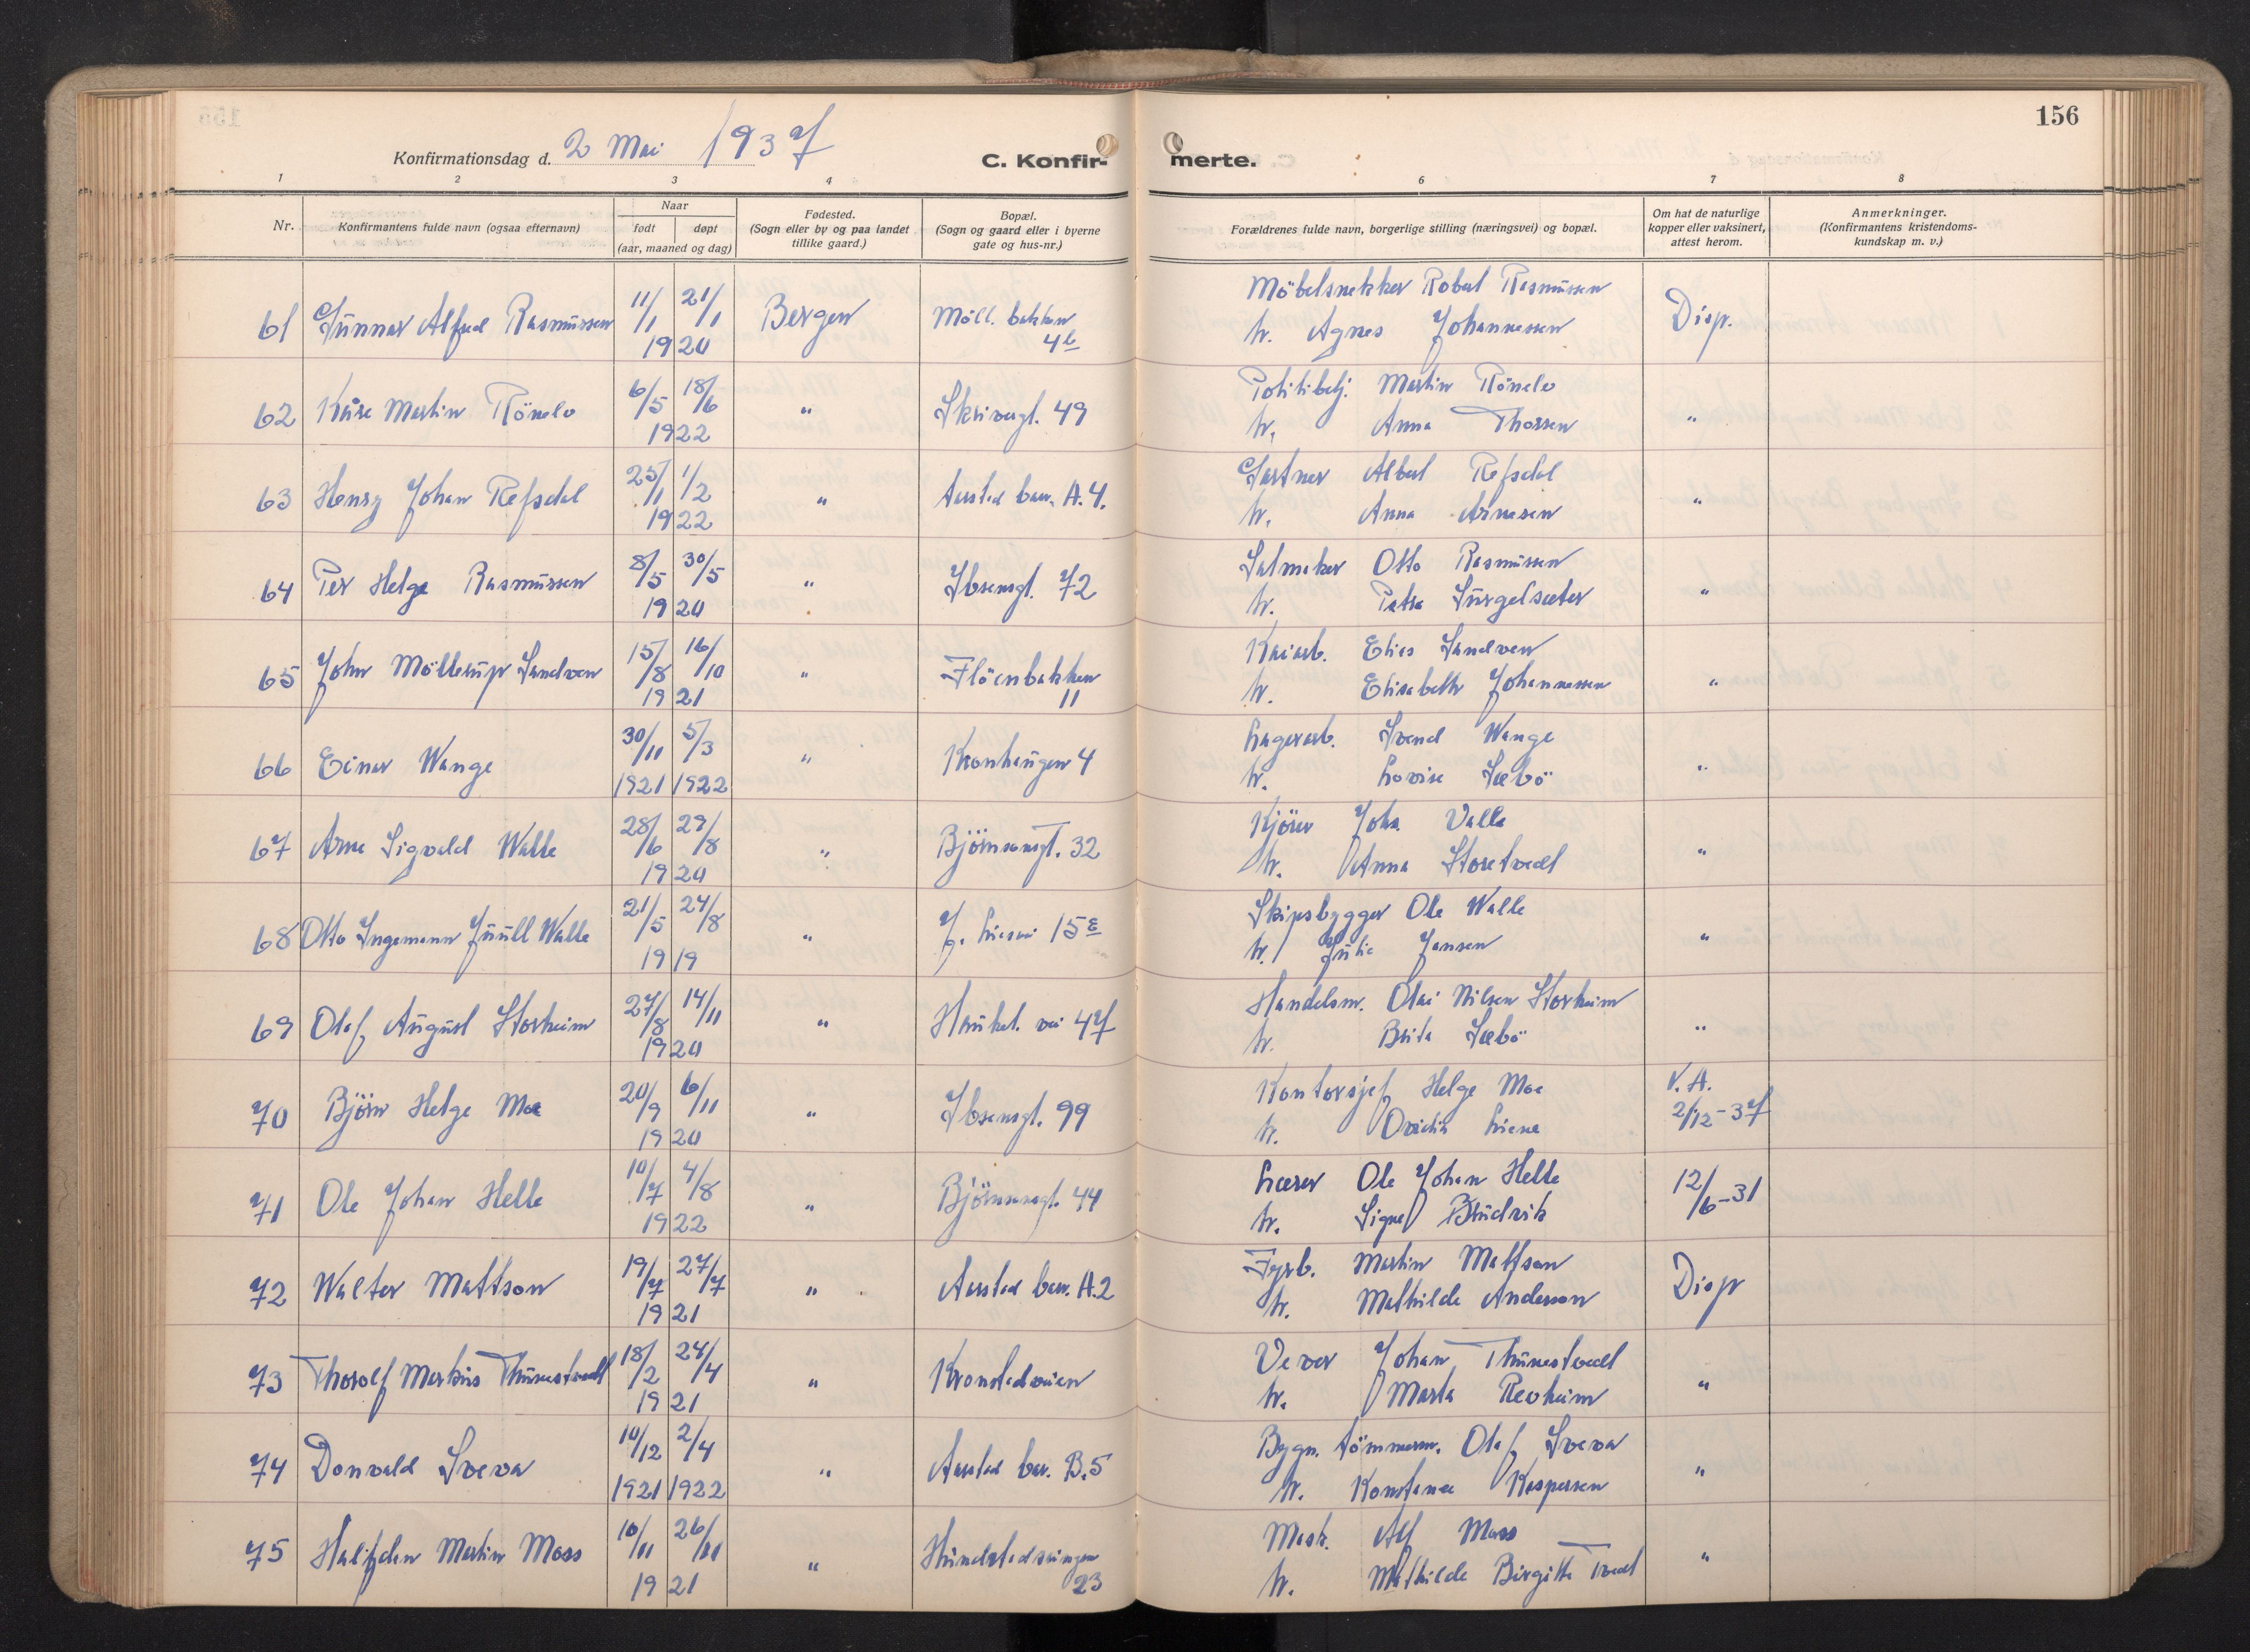 156
Konfirmationsdag d. 2 Mai 1937
C. Konfirmerte.
1 2 3 4 6 7 8
Nr.
Konfirmantens fulde navn (ogsaa efternavn)
Naar
født døpt
(aar, maaned og dag)
Fødested.
(Sogn eller by og paa landet
tillike gaard.)
Bopæl.
(Sogn og gaard eller i byerne
gate og hus-nr.)
Forældrenes fulde navn, borgerlige stilling (næringsvei) og bopæl.
Om hat de naturlige
kopper eller vaksinert,
attest herom.
Anmerkninger.
(Konfirmantens kristendoms-
kundskap m. v.)
61 Gunnar Alfred Rasmussen 11/1 21/1 1920 Bergen Möll. bakken 4b
Möbelsnekker Robert Rasmussen Disp.
h. Agnes Johannessen
62 Kåre Martin Rönelv 6/5 18/6 1922 " Skivergt. 49
Politibetj. Martin Rönelv "
h. Anna Thorsen
63 Henry Johan Refsdal 25/1 1/2 1922 " Aarstad barr. A.4.
Gartner Albert Refsdal "
h. Anna Arnesen
64 Per Helge Rasmussen 8/5 30/5 1920 " Ibsensgt. 72
Salmaker Otto Rasmussen "
h. Petra
65 John Möllerup Sandven 15/8 16/10 1921 " Flöenbakken 11
Kaiarb. Elias Sandven "
h. Elisabeth Johannessen
66 Einar Wange 30/11 5/3 1921 1922 " Kronhaugen 4
Lagerarb. Svend Wange "
h. Lovise Sæbö
67 Arne Sigvald Walle 28/6 29/8 1920 " Björnsonsgt. 32
Kjörer Johs. Valle "
h. Anna Storetvedt
68 Otto Ingemann Juull Walle 21/5 24/8 1919 " J. Liesvei 15E
Skipsbygger Ole Walle "
h. Julie Jansen
69 Olaf August Storheim 27/8 14/11 1920 " Haukel. vei 47
Handelsm. Olai Nilsen Storheim "
h. Brita Sæbö
70 Björn Helge Moe 20/9 6/11 1920 " Ibsensgt. 99
Kontorsjef Helge Moe V.A. 2/12-37
h. Ovidia
71 Ole Johan Helle 10/7 4/8 1922 " Björnsonsgt. 44
Lærer Ole Johan Helle 12/6-31
h. Signe Brudvik
72 Walter Mattson 19/7 27/7 1921 " Aarstad barr. A.2
Fyrb. Martin Mattson Disp
h. Mathilde Anderson
73 Thorolf Markus Thunestvedt 18/2 24/4 1921 " Kronstadveien
Vever Johan Thunestvedt "
h. Marta Revheim
74 Donvald Sveva 10/12 2/4 1921 1922 " Aarstad bar. B.5
Bygn. tömmerm. Olaf Sveva "
h. Konstanse Kaspersen
75 Halfdan Martin Moss 10/11 26/11 1921 " Hunstadsvingen 23
Mask. Alf Moss "
h. Mathilde Birgitte Tvedt